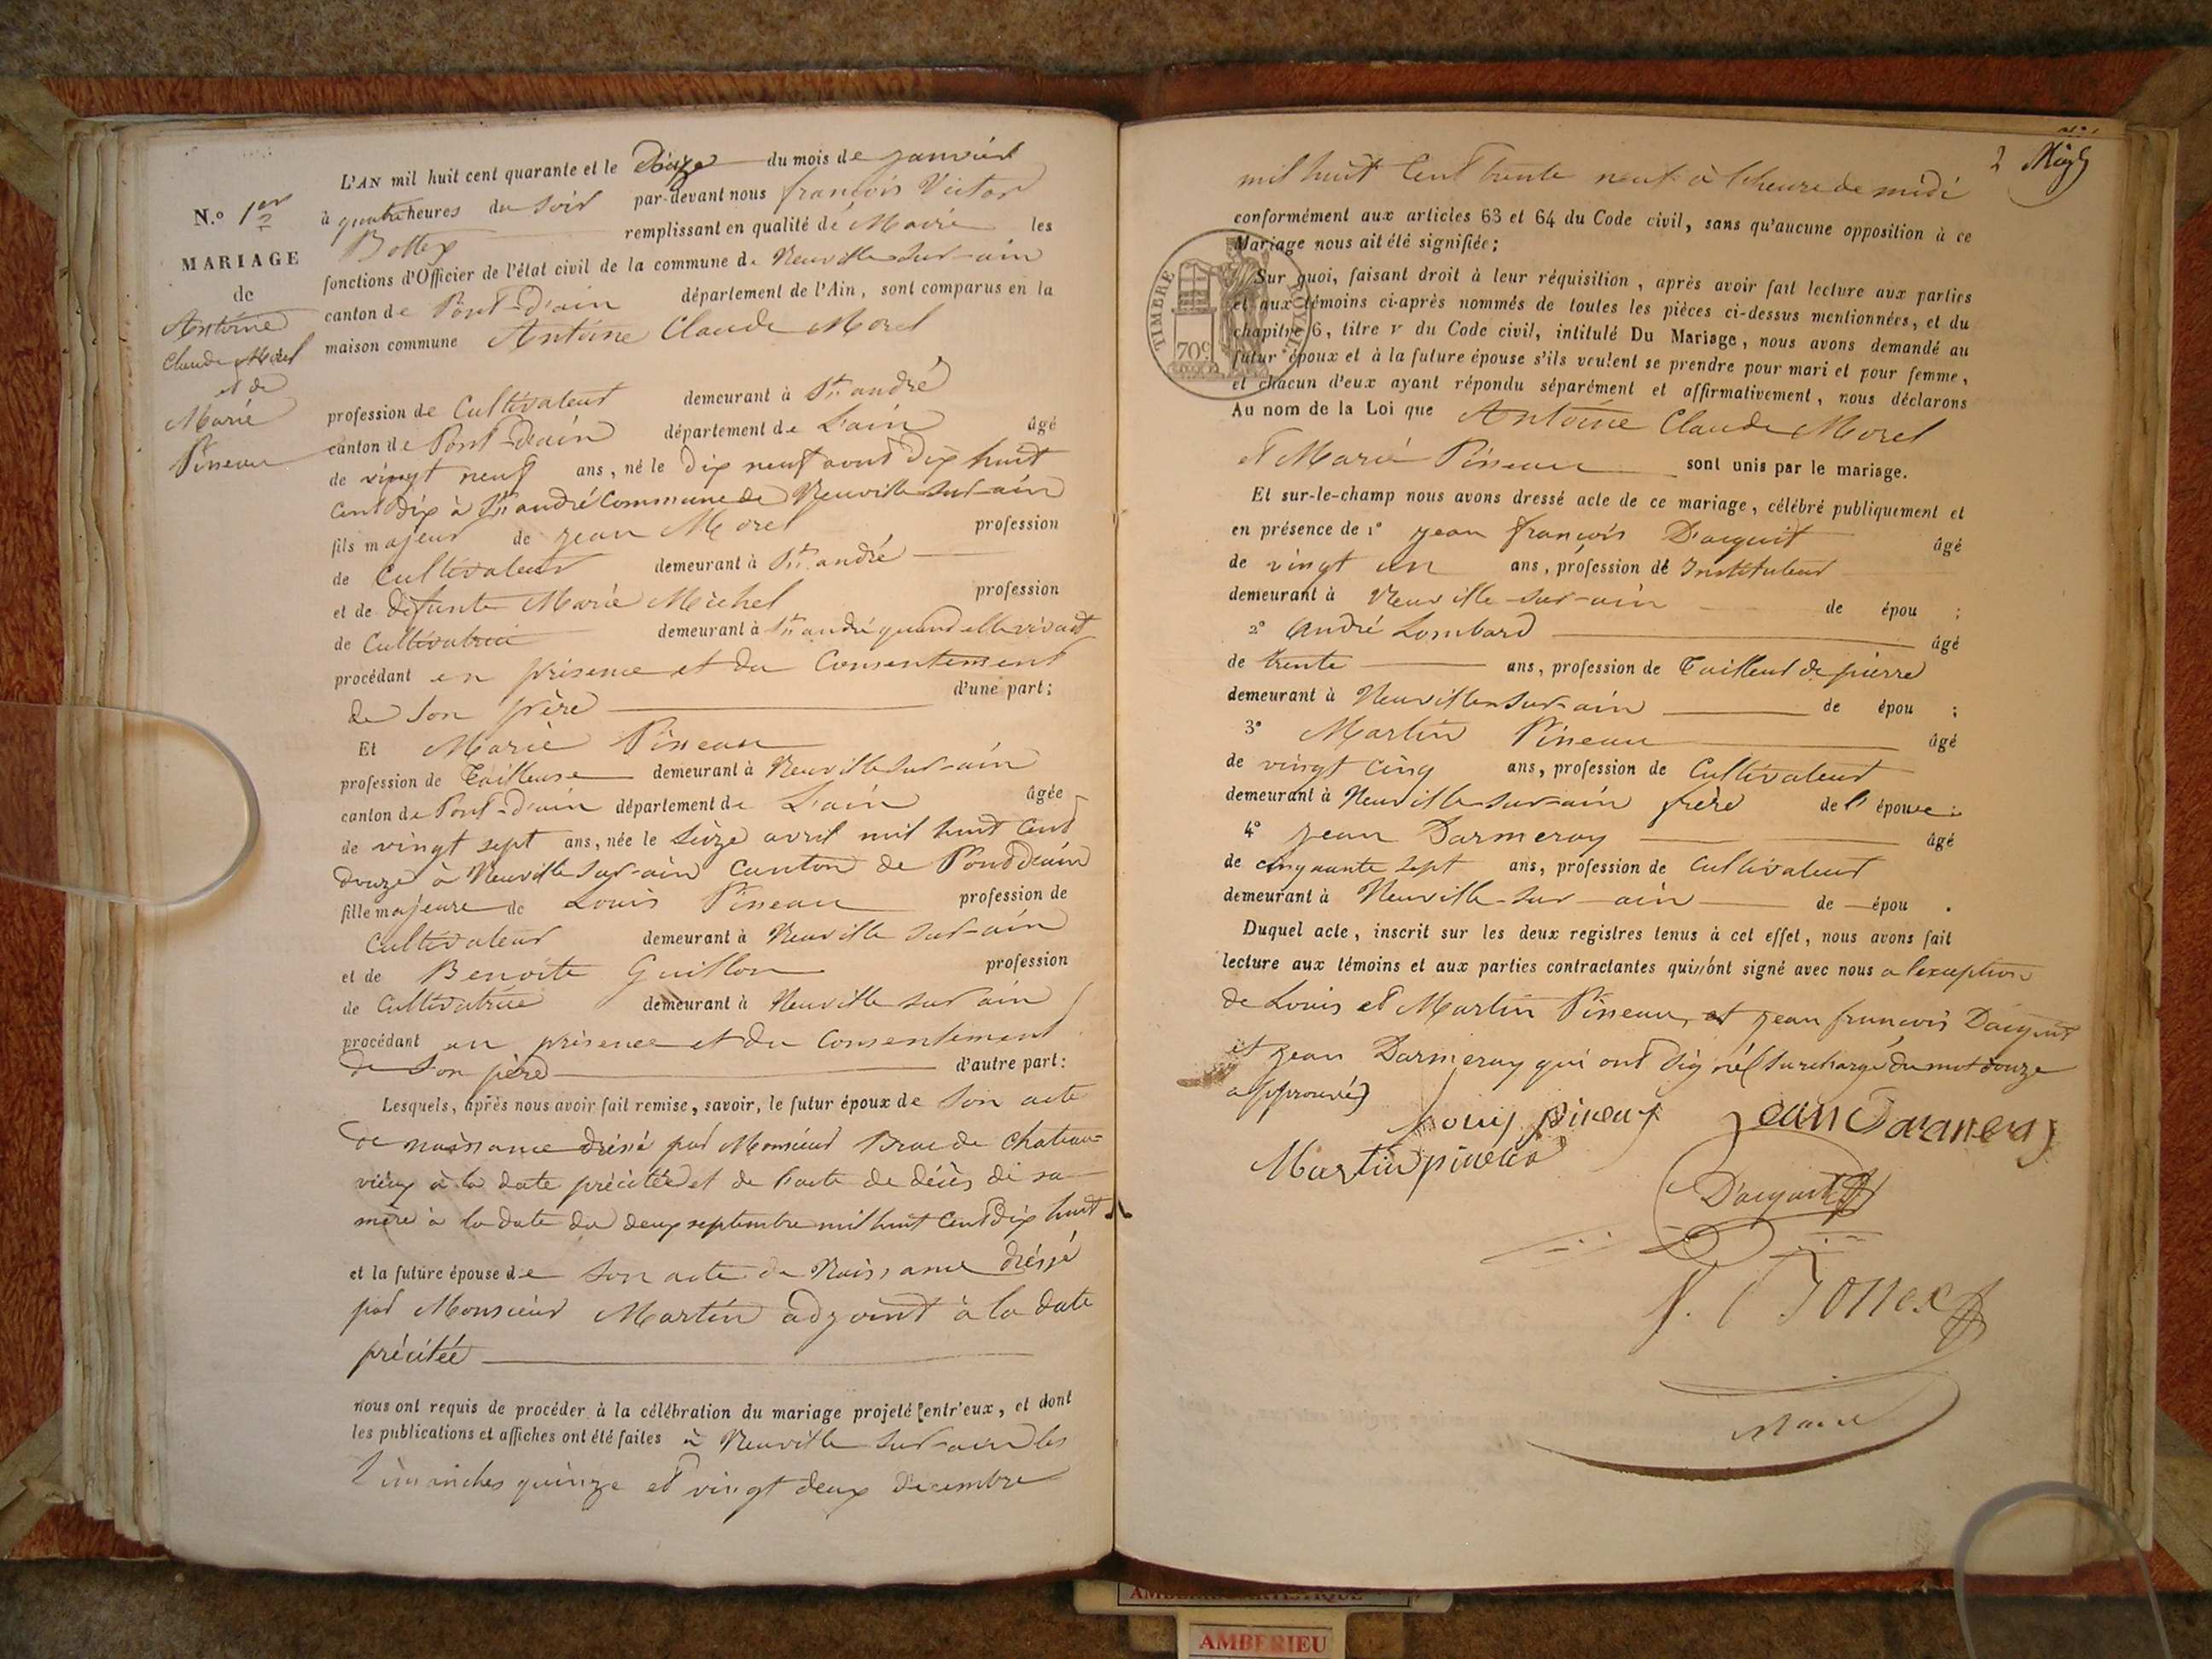 N.º 1er
MARIAGE
de
Antoine
Claude Morel
et de
Marie
Pineau
L'AN mil huit cent quarante et le douze du mois de janvier
à quatre heures du soir par-devant nous françois Victor
Bottex remplissant en qualité de Maire les
fonctions d'Officier de l'état civil de la commune de Neuville sur-ain
canton de Pont-d'ain département de l'Ain, sont comparus en la
maison commune Antoine Claude Morel
profession de Cultivateur demeurant à St. andré
canton de Pont-d'ain département de L'ain âgé
de vingt neuf ans, né le dix neuf aout dix huit
cent dix à St. andré Commune de Neuville sur-ain
fils majeur de jean Morel profession
de Cultivateur demeurant à St. andré
et de défunte Marie Michel profession
de Cultivatrice demeurant à St. andré quand elle vivait
procédant en présence et du Consentement
de son père d'une part;
Et Marie Pineau
profession de Tailleuse demeurant à Neuville sur-ain
canton de Pont-d'ain département de L'ain âgée
de vingt sept ans, née le seize avril mil huit cent
douze à Neuville sur-ain Canton de Pont d'ain
fille majeure de Louis Pineau profession de
Cultivateur demeurant à Neuville sur-ain
et de Benoite Guillon profession
de Cultivatrice demeurant à Neuville sur ain
procédant en présence et du Consentement
de son père d'autre part:
Lesquels, après nous avoir fait remise, savoir, le futur époux de son acte
de naissance dressé par Monsieur Brac de Chateau=
vieux à la date précitée et de l'acte de décès de sa
mère à la date du deux septembre mil huit cent dix huit
et la future épouse de son acte de Naissance dréssé
par Monsieur Martin adjoint à la date
précitée
nous ont requis de procéder à la célébration du mariage projeté entr'eux, et dont
les publications et affiches ont été faites à Neuville sur-ain les
Dimanches quinze et vingt deux Decembre
2
mil huit Cent trente neuf à l'heure de midi
conformément aux articles 63 et 64 du Code civil, sans qu'aucune opposition à ce
Mariage nous ait été signifiée;
TIMBRE ROYAL
70c
Sur quoi, faisant droit à leur réquisition, après avoir fait lecture aux parties
et aux témoins ci-après nommés de toutes les pièces ci-dessus mentionnées, et du
chapitre 6, titre v du Code civil, intitulé Du Mariage, nous avons demandé au
futur époux et à la future épouse s'ils veulent se prendre pour mari et pour femme,
et chacun d'eux ayant répondu séparément et affirmativement, nous déclarons
Au nom de la Loi que Antoine Claude Morel
et Marie Pineau sont unis par le mariage.
Et sur-le-champ nous avons dressé acte de ce mariage, célébré publiquement et
en présence de 1º jean françois D'acquit âgé
de vingt un ans, profession de Instituteur
demeurant à Neuville-sur-ain de épou ;
2º andré Lombard âgé
de trente ans, profession de Tailleur de pierre
demeurant à Neuville sur-ain de épou ;
3º Martin Pineau âgé
de vingt cinq ans, profession de Cultivateur
demeurant à Neuville sur-ain frère de l'épouse;
4º jean Darmeray âgé
de cinquante sept ans, profession de Cultivateur
demeurant à Neuville-sur-ain de épou .
Duquel acte, inscrit sur les deux registres tenus à cet effet, nous avons fait
lecture aux témoins et aux parties contractantes qui n'ont signé avec nous a l'exception
de Louis et Martin Pineau, et jean françois Dacquit
et jean Darmeray qui ont signé (surcharge du mot douze
approuvé)
Louis pineau jean Darmeray
Martin pineau
D'acquit
V. Bottex
Maire
AMBERIEU